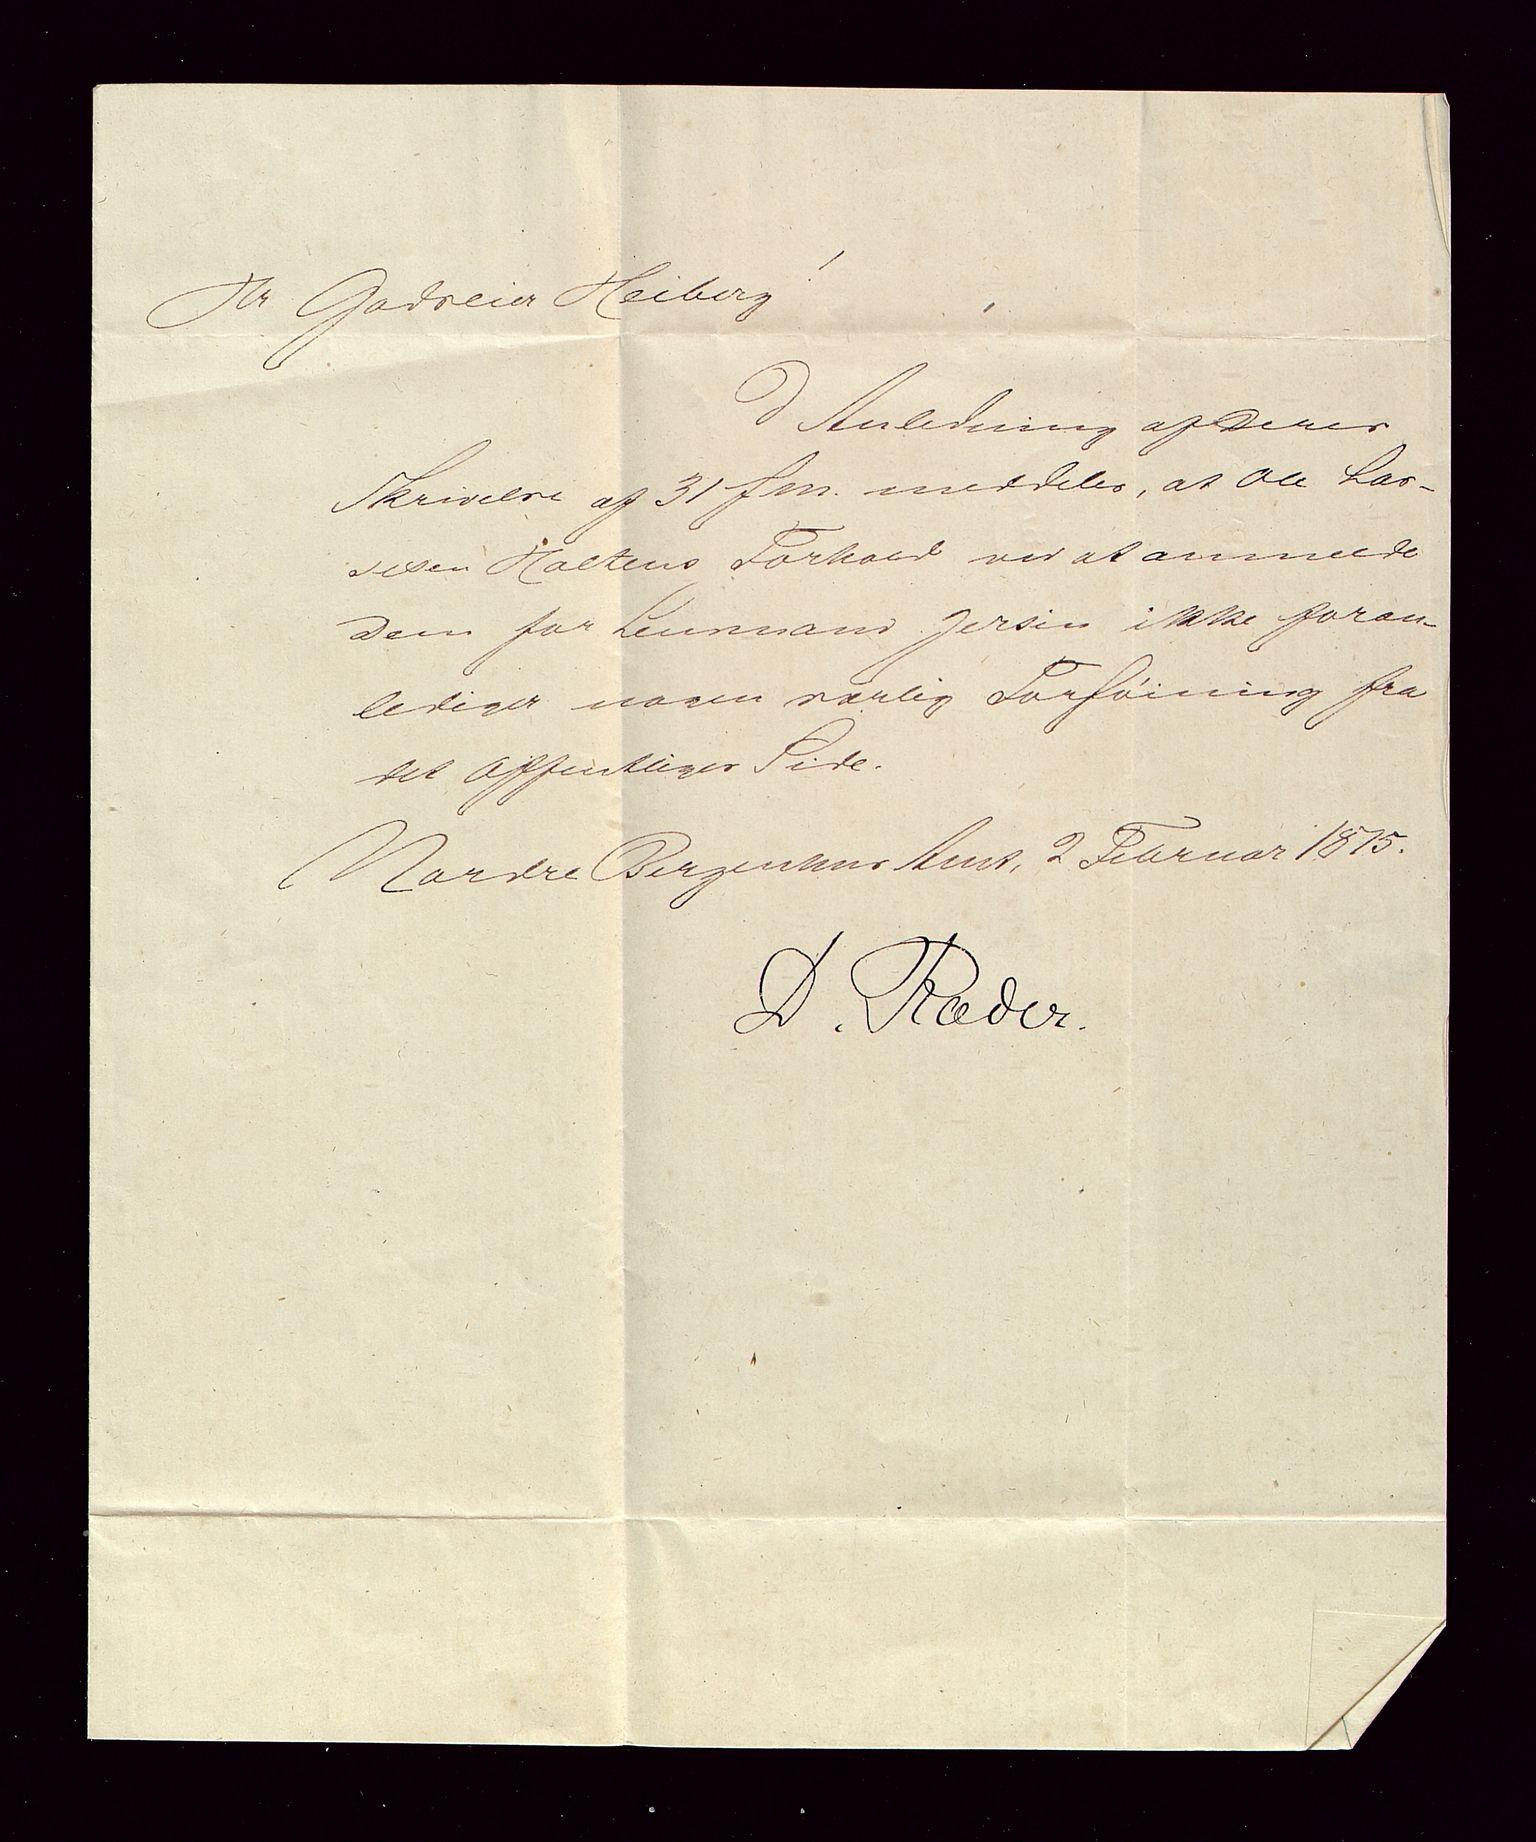 Hr Godseier Heiberg!
I Anledning af Deres
Skrivelse af 31 f. m. meddeles, at Ole Lar-
sesen Holtens Forhold ved at anmelde
Dem for Lensmand Jersin ikke foran-
lediger nogen særlig Forföining fra
det Offentliges Side.
Nordre Bergenhus Amt, 2 Februar 1875.
D. Ræder.